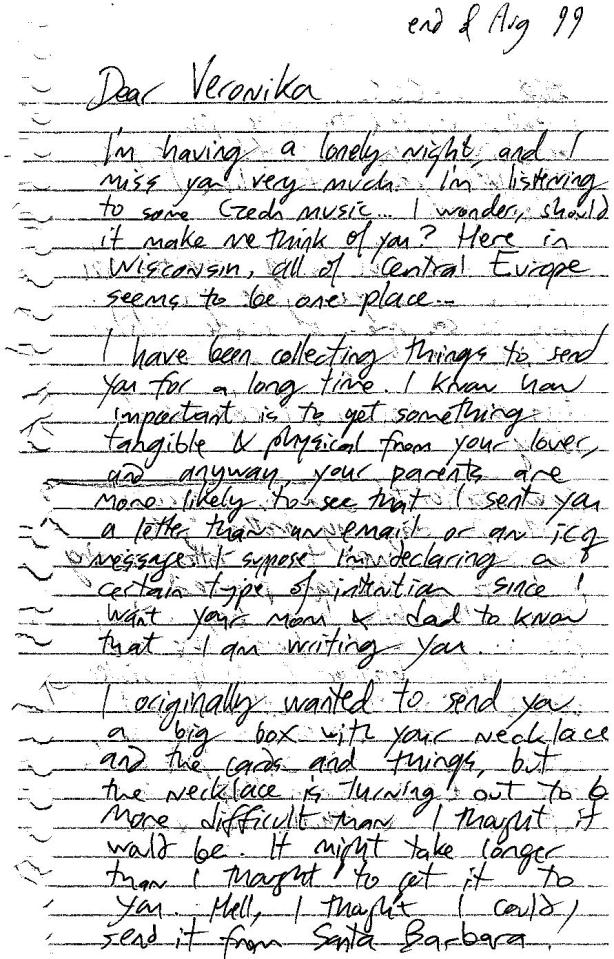 end of Aug 99
Dear Veronika
I'm having a lonely night, and I
miss you very much. I'm listening
to some Czech music... I wonder, should
it make me think of you? Here in
Wisconsin, all of Central Europe
seems to be one place...
I have been collecting things to send
you for a long time. I know how
important is to get something
tangible & physical from your lover,
and anyway, your parents are
more likely to see that I sent you
a letter than an email or an icq
message. I suppose I'm declaring a
certain type of intention since I
want your mom & dad to know
that I am writing you.
I originally wanted to send you
a big box with your necklace
and the cards and things, but
the necklace is turning out to b
more difficult than I thought it
would be. It might take longer
than I thought to get it to
you. Hell, I thought I could
send it from Santa Barbara!